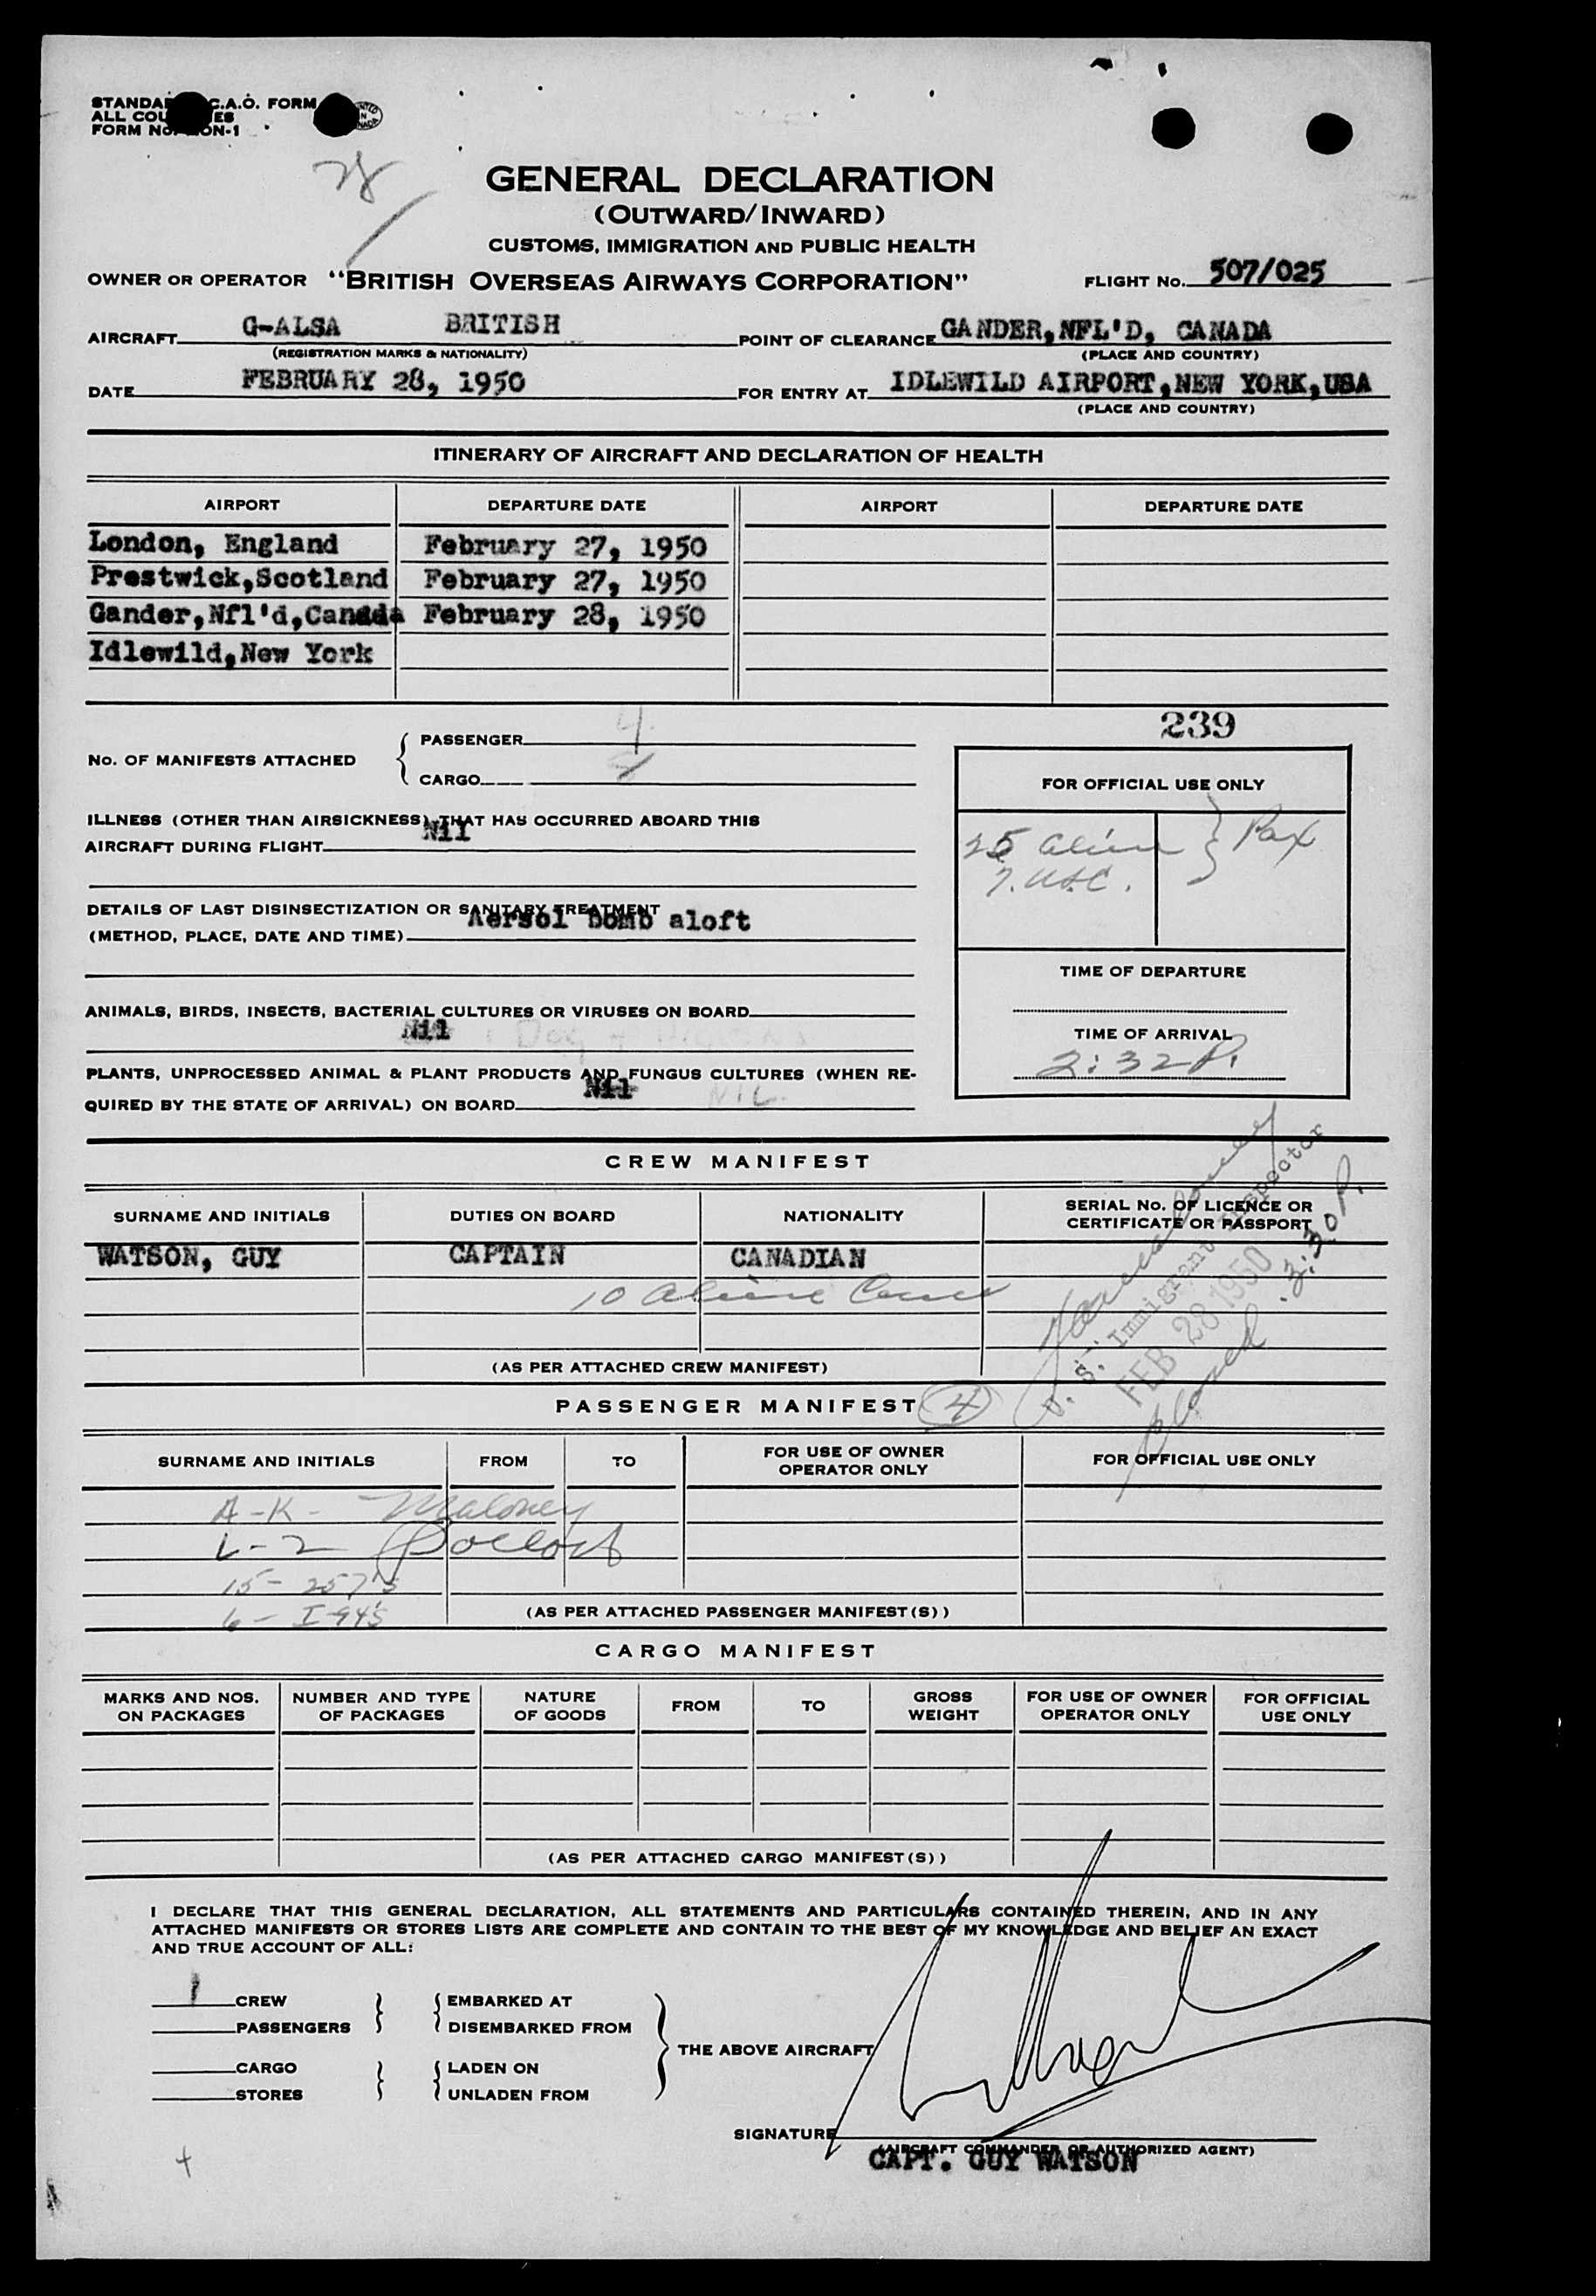 STANDA C.A.O. FORM
ALL COU ES
FORM No. ON-1
GENERAL DECLARATION
(OUTWARD/INWARD)
CUSTOMS, IMMIGRATION AND PUBLIC HEALTH
OWNER OR OPERATOR "BRITISH OVERSEAS AIRWAYS CORPORATION" FLIGHT No. 507/025
AIRCRAFT G-ALSA BRITISH POINT OF CLEARANCE GANDER,NFL'D, CANADA
(REGISTRATION MARKS & NATIONALITY) (PLACE AND COUNTRY)
DATE FEBRUARY 28, 1950 FOR ENTRY AT IDLEWILD AIRPORT,NEW YORK,USA
(PLACE AND COUNTRY)
ITINERARY OF AIRCRAFT AND DECLARATION OF HEALTH
AIRPORT DEPARTURE DATE AIRPORT DEPARTURE DATE
London, England February 27, 1950
Prestwick,Scotland February 27, 1950
Gander,Nfl'd,Canada February 28, 1950
Idlewild,New York
239
No. OF MANIFESTS ATTACHED
PASSENGER 4
CARGO
FOR OFFICIAL USE ONLY
25 alien Pax
7. USC.
ILLNESS (OTHER THAN AIRSICKNESS) THAT HAS OCCURRED ABOARD THIS
AIRCRAFT DURING FLIGHT Nil
DETAILS OF LAST DISINSECTIZATION OR SANITARY TREATMENT
(METHOD, PLACE, DATE AND TIME) Aersol bomb aloft
TIME OF DEPARTURE
ANIMALS, BIRDS, INSECTS, BACTERIAL CULTURES OR VIRUSES ON BOARD
Nil 1 Dog
TIME OF ARRIVAL
2:32 P.
PLANTS, UNPROCESSED ANIMAL & PLANT PRODUCTS AND FUNGUS CULTURES (WHEN RE-
QUIRED BY THE STATE OF ARRIVAL) ON BOARD Nil NIL
CREW MANIFEST
SURNAME AND INITIALS DUTIES ON BOARD NATIONALITY SERIAL No. OF LICENCE OR
CERTIFICATE OR PASSPORT
WATSON, GUY CAPTAIN CANADIAN
10 aliens
U. S. Immigrant Inspector
FEB 28 1950
3:30 P.
(AS PER ATTACHED CREW MANIFEST)
PASSENGER MANIFEST 4
SURNAME AND INITIALS FROM TO FOR USE OF OWNER
OPERATOR ONLY FOR OFFICIAL USE ONLY
A-K- Maloney
L-Z
15- 257's
6- I-94's
(AS PER ATTACHED PASSENGER MANIFEST(S))
CARGO MANIFEST
MARKS AND NOS.
ON PACKAGES NUMBER AND TYPE
OF PACKAGES NATURE
OF GOODS FROM TO GROSS
WEIGHT FOR USE OF OWNER
OPERATOR ONLY FOR OFFICIAL
USE ONLY
(AS PER ATTACHED CARGO MANIFEST(S))
I DECLARE THAT THIS GENERAL DECLARATION, ALL STATEMENTS AND PARTICULARS CONTAINED THEREIN, AND IN ANY
ATTACHED MANIFESTS OR STORES LISTS ARE COMPLETE AND CONTAIN TO THE BEST OF MY KNOWLEDGE AND BELIEF AN EXACT
AND TRUE ACCOUNT OF ALL:
1 CREW EMBARKED AT
PASSENGERS DISEMBARKED FROM
THE ABOVE AIRCRAFT
CARGO LADEN ON
STORES UNLADEN FROM
SIGNATURE
(AIRCRAFT COMMANDER OR AUTHORIZED AGENT)
CAPT. GUY WATSON
4